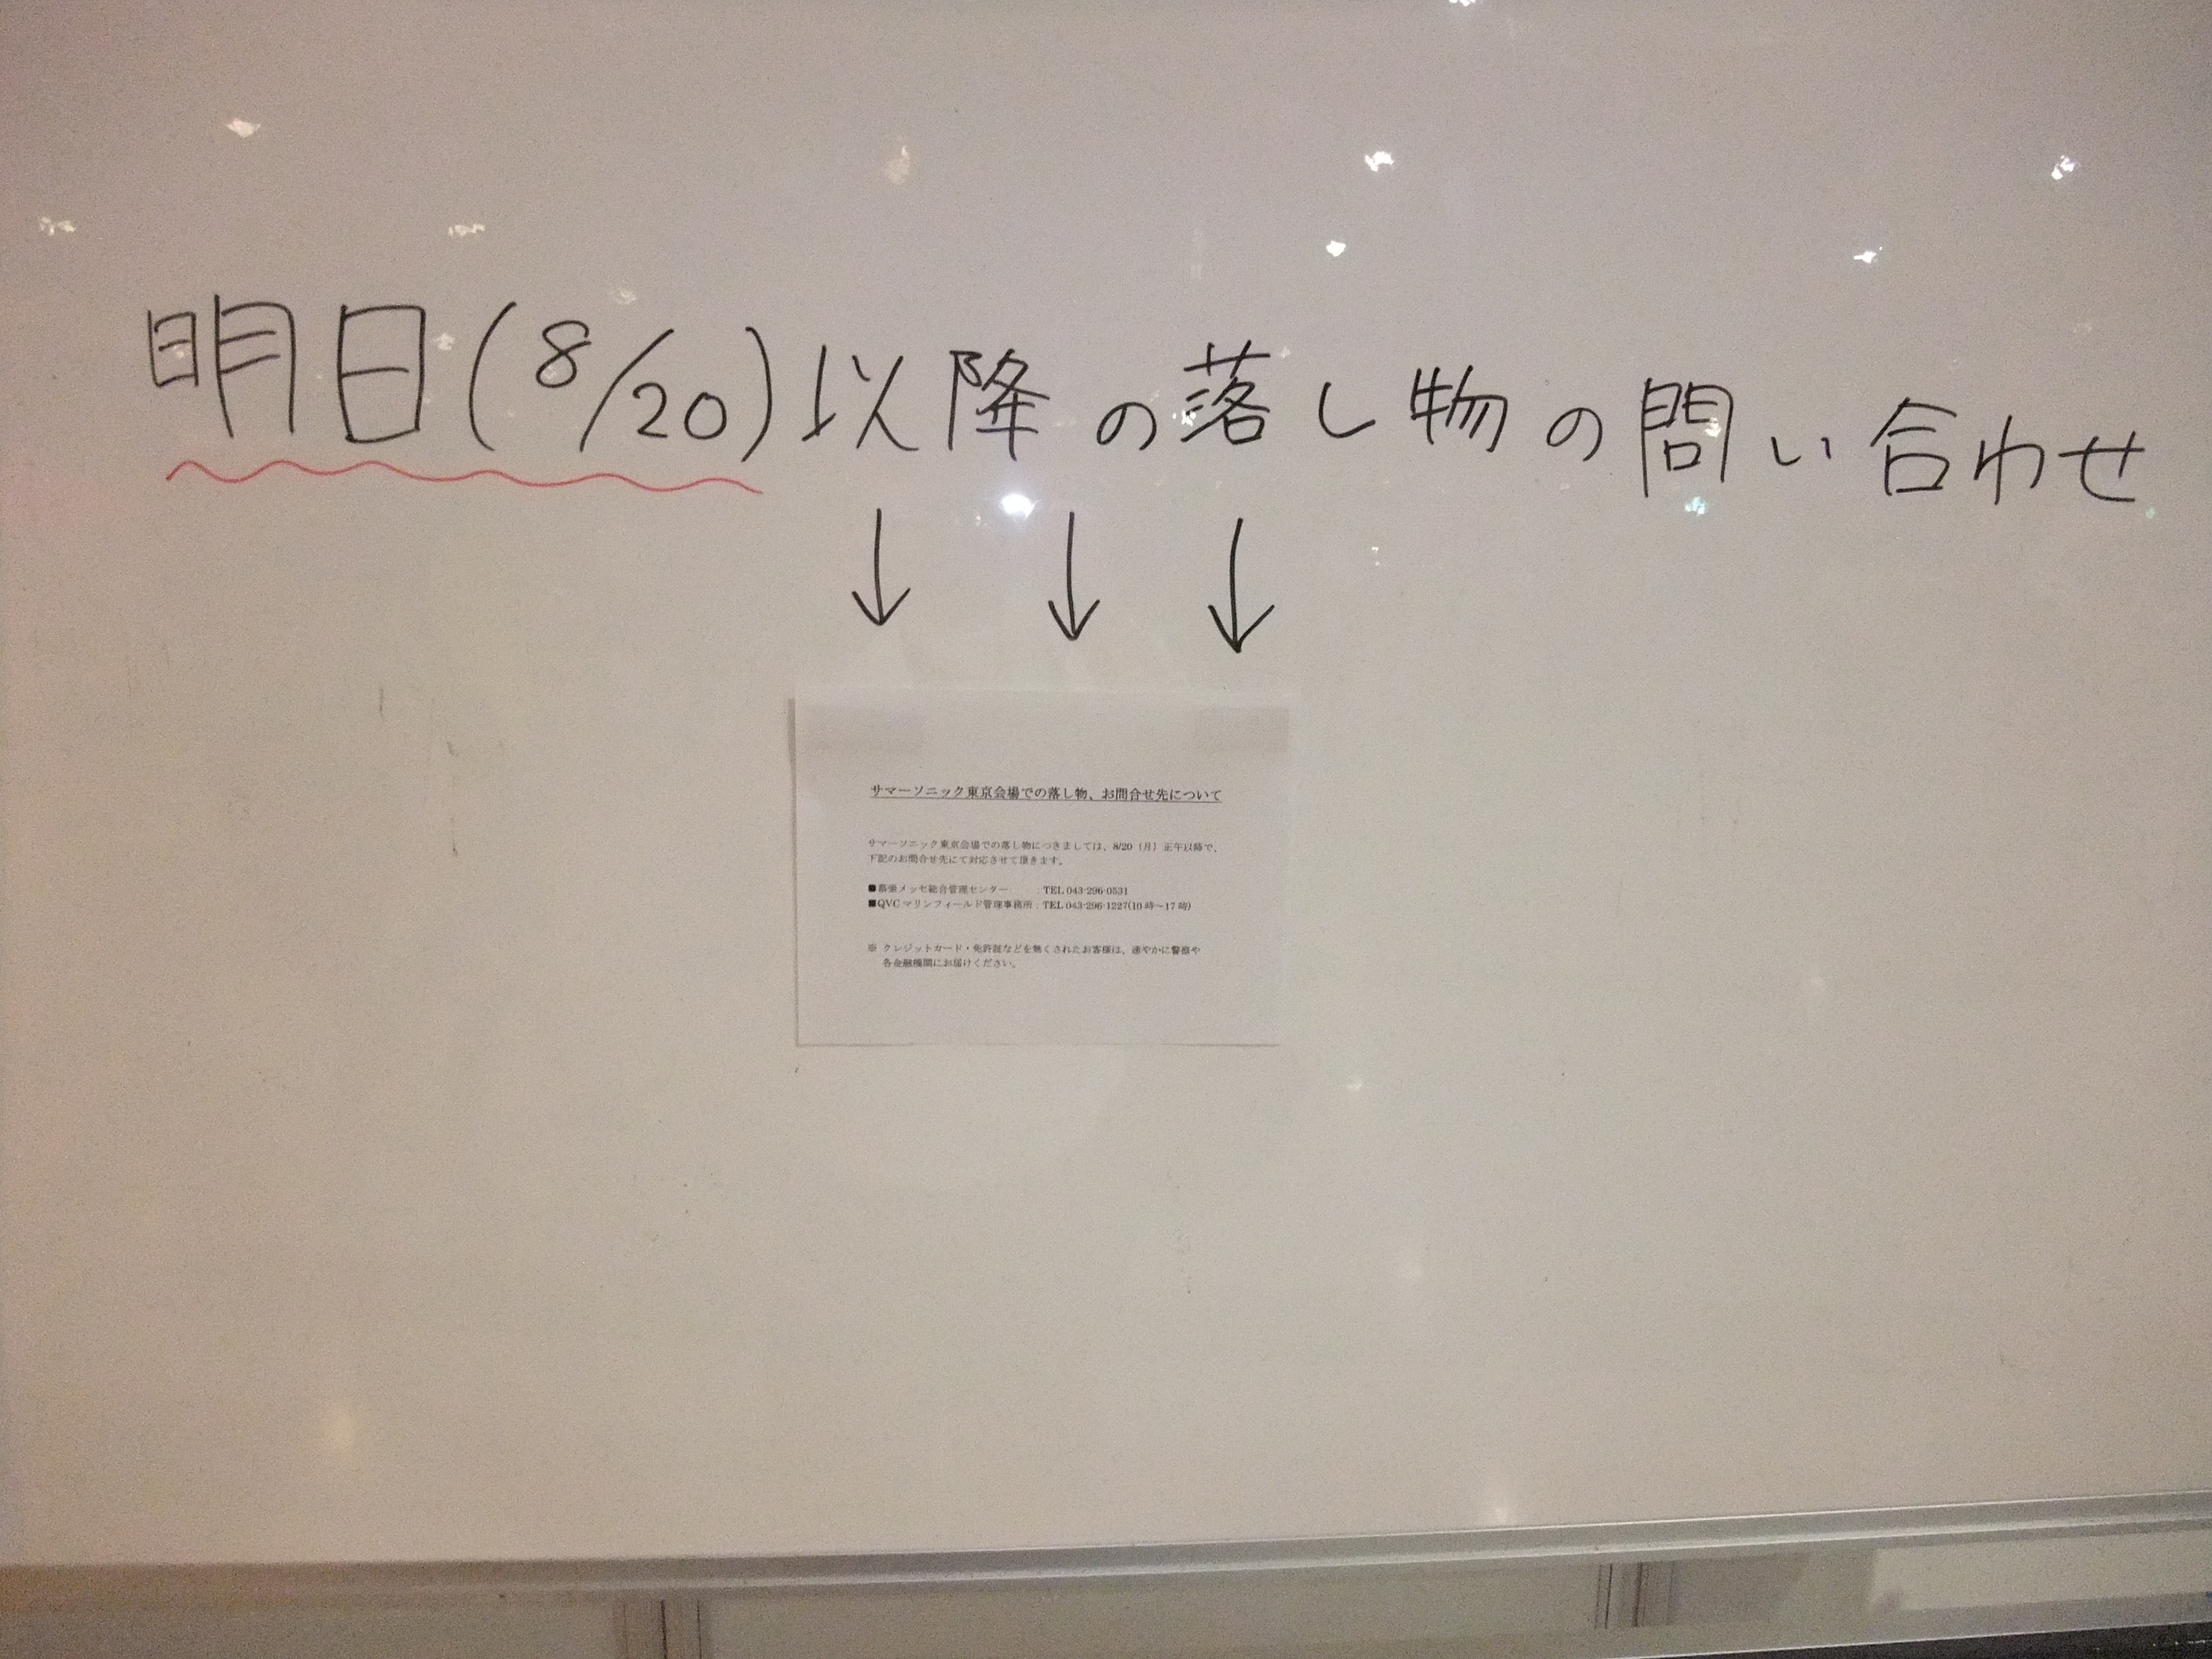 明日(8/20)以降の落し物の問い合わせ
↓ ↓ ↓
サマーソニック東京会場での落し物、お問合せ先について
サマーソニック東京会場での落し物につきましては、8/20（月）正午以降で、
下記のお問合せ先にて対応させて頂きます。
■幕張メッセ総合管理センター　　：TEL 043-296-0531
■QVC マリンフィールド管理事務所：TEL 043-296-1227(10 時～17 時)
※ クレジットカード・免許証などを無くされたお客様は、速やかに警察や
各金融機関にお届けください。